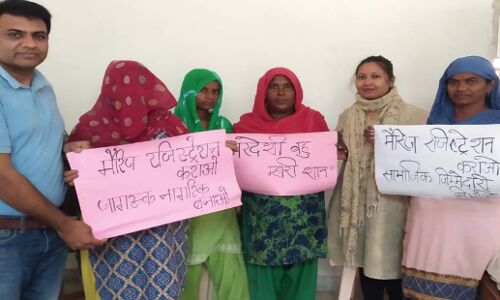 मैरिज रजिस्ट्रेशन
कराओ
जागरूक नागरिक
बनाओ
परदेशी बहु
म्हारी शान"
मैरिज रजिस्ट्रेशन
कराओ
सामाजिक जिम्मेदारी